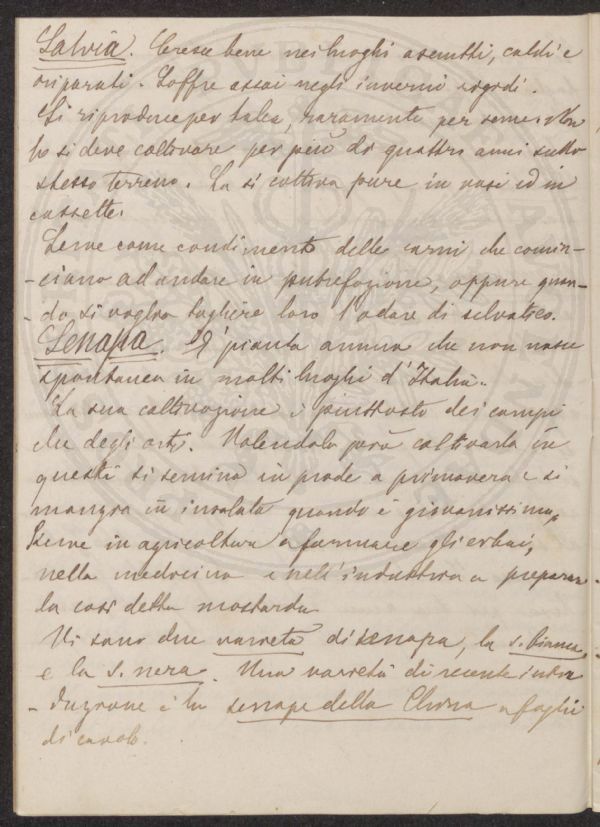 Salvia. Cresce bene nei luoghi asciutti, caldi e
riparati. Soffre assai negli inverni rigidi.
Si riproduce per talea, raramente per seme. Non
la si deve coltivare per più di quattro anni sullo
stesso terreno. La si coltiva pure in vasi ed in
cassette.
Serve come condimento delle carni che comin-
-ciano ad andare in putrefazione, oppure quan-
-do si voglia togliere loro l'odore di selvatico.
Senapa. E' pianta annua che non nasce
spontanea in molti luoghi d'Italia.
La sua coltivazione è piuttosto dei campi
che degli orti. Volendola però coltivarla in
questi si semina in prode a primavera e si
mangia in insalata quando è giovanissima,
Serve in agricoltura a formare gli erbai,
nella medicina e nell'industria a preparar-
la così detta mostarda
Vi sono due varietà di senapa, la s. bianca,
e la s. nera. Una varietà di recente intro
-duzione è la senape della China a foglie
di cavolo.